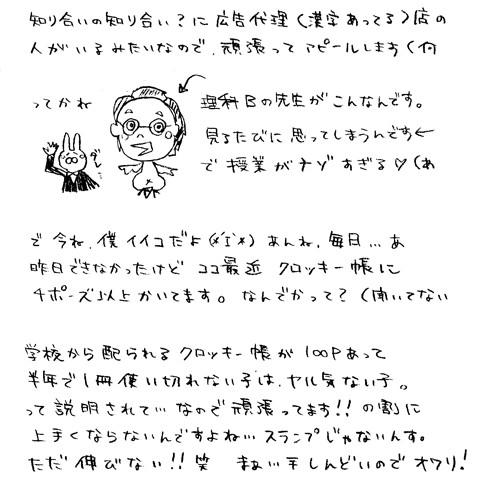 知り合いの知り合い？に広告代理（漢字あってる）店の
人がいるみたいなので、頑張ってアピールします（何
ってかね
理科Bの先生がこんなんです。
見るたびに思ってしまうんです←
で授業がナゾすぎる♡（あ
ダレ…
で今ね、僕イイコだよ(*´I`*) あんね、毎日…あ
昨日できなかったけどココ最近クロッキー帳に
4ポーズ以上かいてます。なんでかって？（聞いてない
学校から配られるクロッキー帳が100Pあって
半年で1冊使い切れない子は、ヤル気ない子。
って説明されて…なので頑張ってます!!の割に
上手くならないんですよね…スランプじゃないんす。
ただ伸びない!!笑 まぁい 手しんどいのでオワリ!